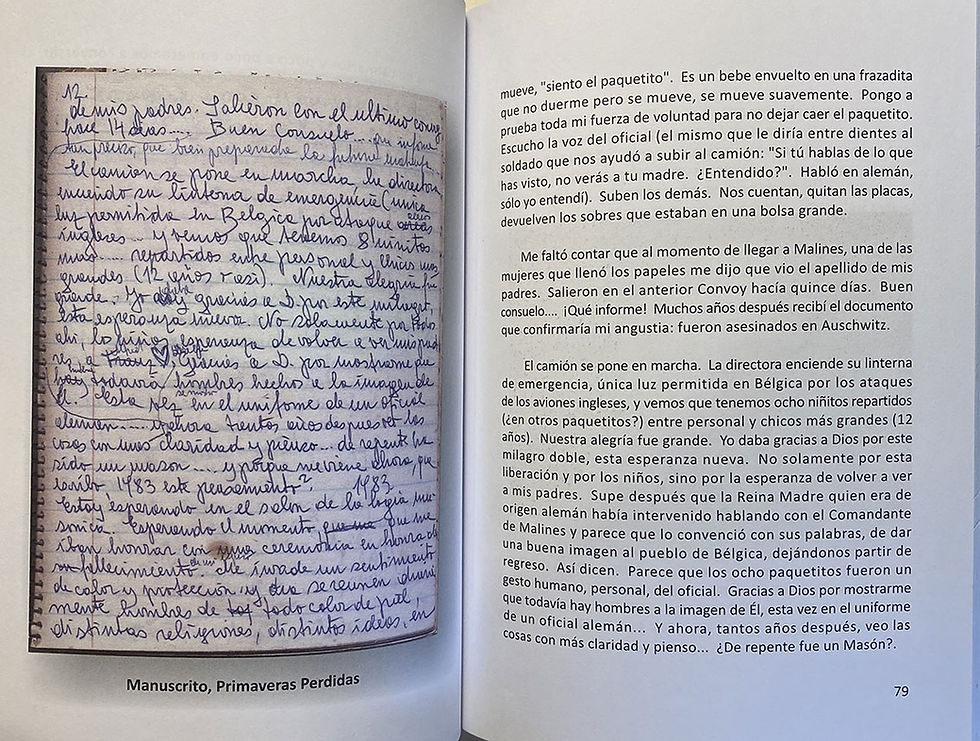 12
de mis padres. Salieron con el ultimo convoy
hace 14 dias.... Buen Consuelo... que informe
tan preciso, que bien preparada la
El camion se pone en marcha, la directora
enciende su linterna de emergencia (unica
luz permitida en Belgica por ataque aviones
ingleses... y vemos que tenemos 8 niñitos
mas... repartidos entre personal y chicos mas
grandes (12 años o asi). Nuestra alegria fue
grande. Yo daba gracias a D. por este milagro,
esta esperanza nueva. No solamente por todos
ahi, los niños, esperanza de volver a ver mis pad
res, a Franz Gracias a D. por mostrarme que
hay todavia hombres hechos a la imagen de
El. Esta vez en el uniforme de un oficial
aleman.... y ahora tantos años despues veo las
cosas con mas claridad y pienso... de repente ha
sido un mason.... y porque me viene ahora, que
escribo 1983 este pensamiento? 1983
Estoy esperando en el salon de la logia ma-
sonica. Esperando el momento que me
iban honrar con una ceremonia en honra de
su fallecimiento. Me invade un sentimiento
de calor y proteccion y que se reunen
mente hombres de todo color de piel,
distintas religiones, distintas ideas, en
Manuscrito, Primaveras Perdidas
mueve, "siento el paquetito". Es un bebe envuelto en una frazadita
que no duerme pero se mueve, se mueve suavemente. Pongo a
prueba toda mi fuerza de voluntad para no dejar caer el paquetito.
Escucho la voz del oficial (el mismo que le diría entre dientes al
soldado que nos ayudó a subir al camión: "Si tú hablas de lo que
has visto, no verás a tu madre. ¿Entendido?". Habló en alemán,
sólo yo entendí). Suben los demás. Nos cuentan, quitan las placas,
devuelven los sobres que estaban en una bolsa grande.
Me faltó contar que al momento de llegar a Malines, una de las
mujeres que llenó los papeles me dijo que vio el apellido de mis
padres. Salieron en el anterior Convoy hacía quince días. Buen
consuelo.... ¡Qué informe! Muchos años después recibí el documento
que confirmaría mi angustia: fueron asesinados en Auschwitz.
El camión se pone en marcha. La directora enciende su linterna
de emergencia, única luz permitida en Bélgica por los ataques
de los aviones ingleses, y vemos que tenemos ocho niñitos repartidos
(¿en otros paquetitos?) entre personal y chicos más grandes (12
años). Nuestra alegría fue grande. Yo daba gracias a Dios por este
milagro doble, esta esperanza nueva. No solamente por esta
liberación y por los niños, sino por la esperanza de volver a ver
a mis padres. Supe después que la Reina Madre quien era de
origen alemán había intervenido hablando con el Comandante
de Malines y parece que lo convenció con sus palabras, de dar
una buena imagen al pueblo de Bélgica, dejándonos partir de
regreso. Así dicen. Parece que los ocho paquetitos fueron un
gesto humano, personal, del oficial. Gracias a Dios por mostrarme
que todavía hay hombres a la imagen de Él, esta vez en el uniforme
de un oficial alemán... Y ahora, tantos años después, veo las
cosas con más claridad y pienso... ¿De repente fue un Masón?.
79